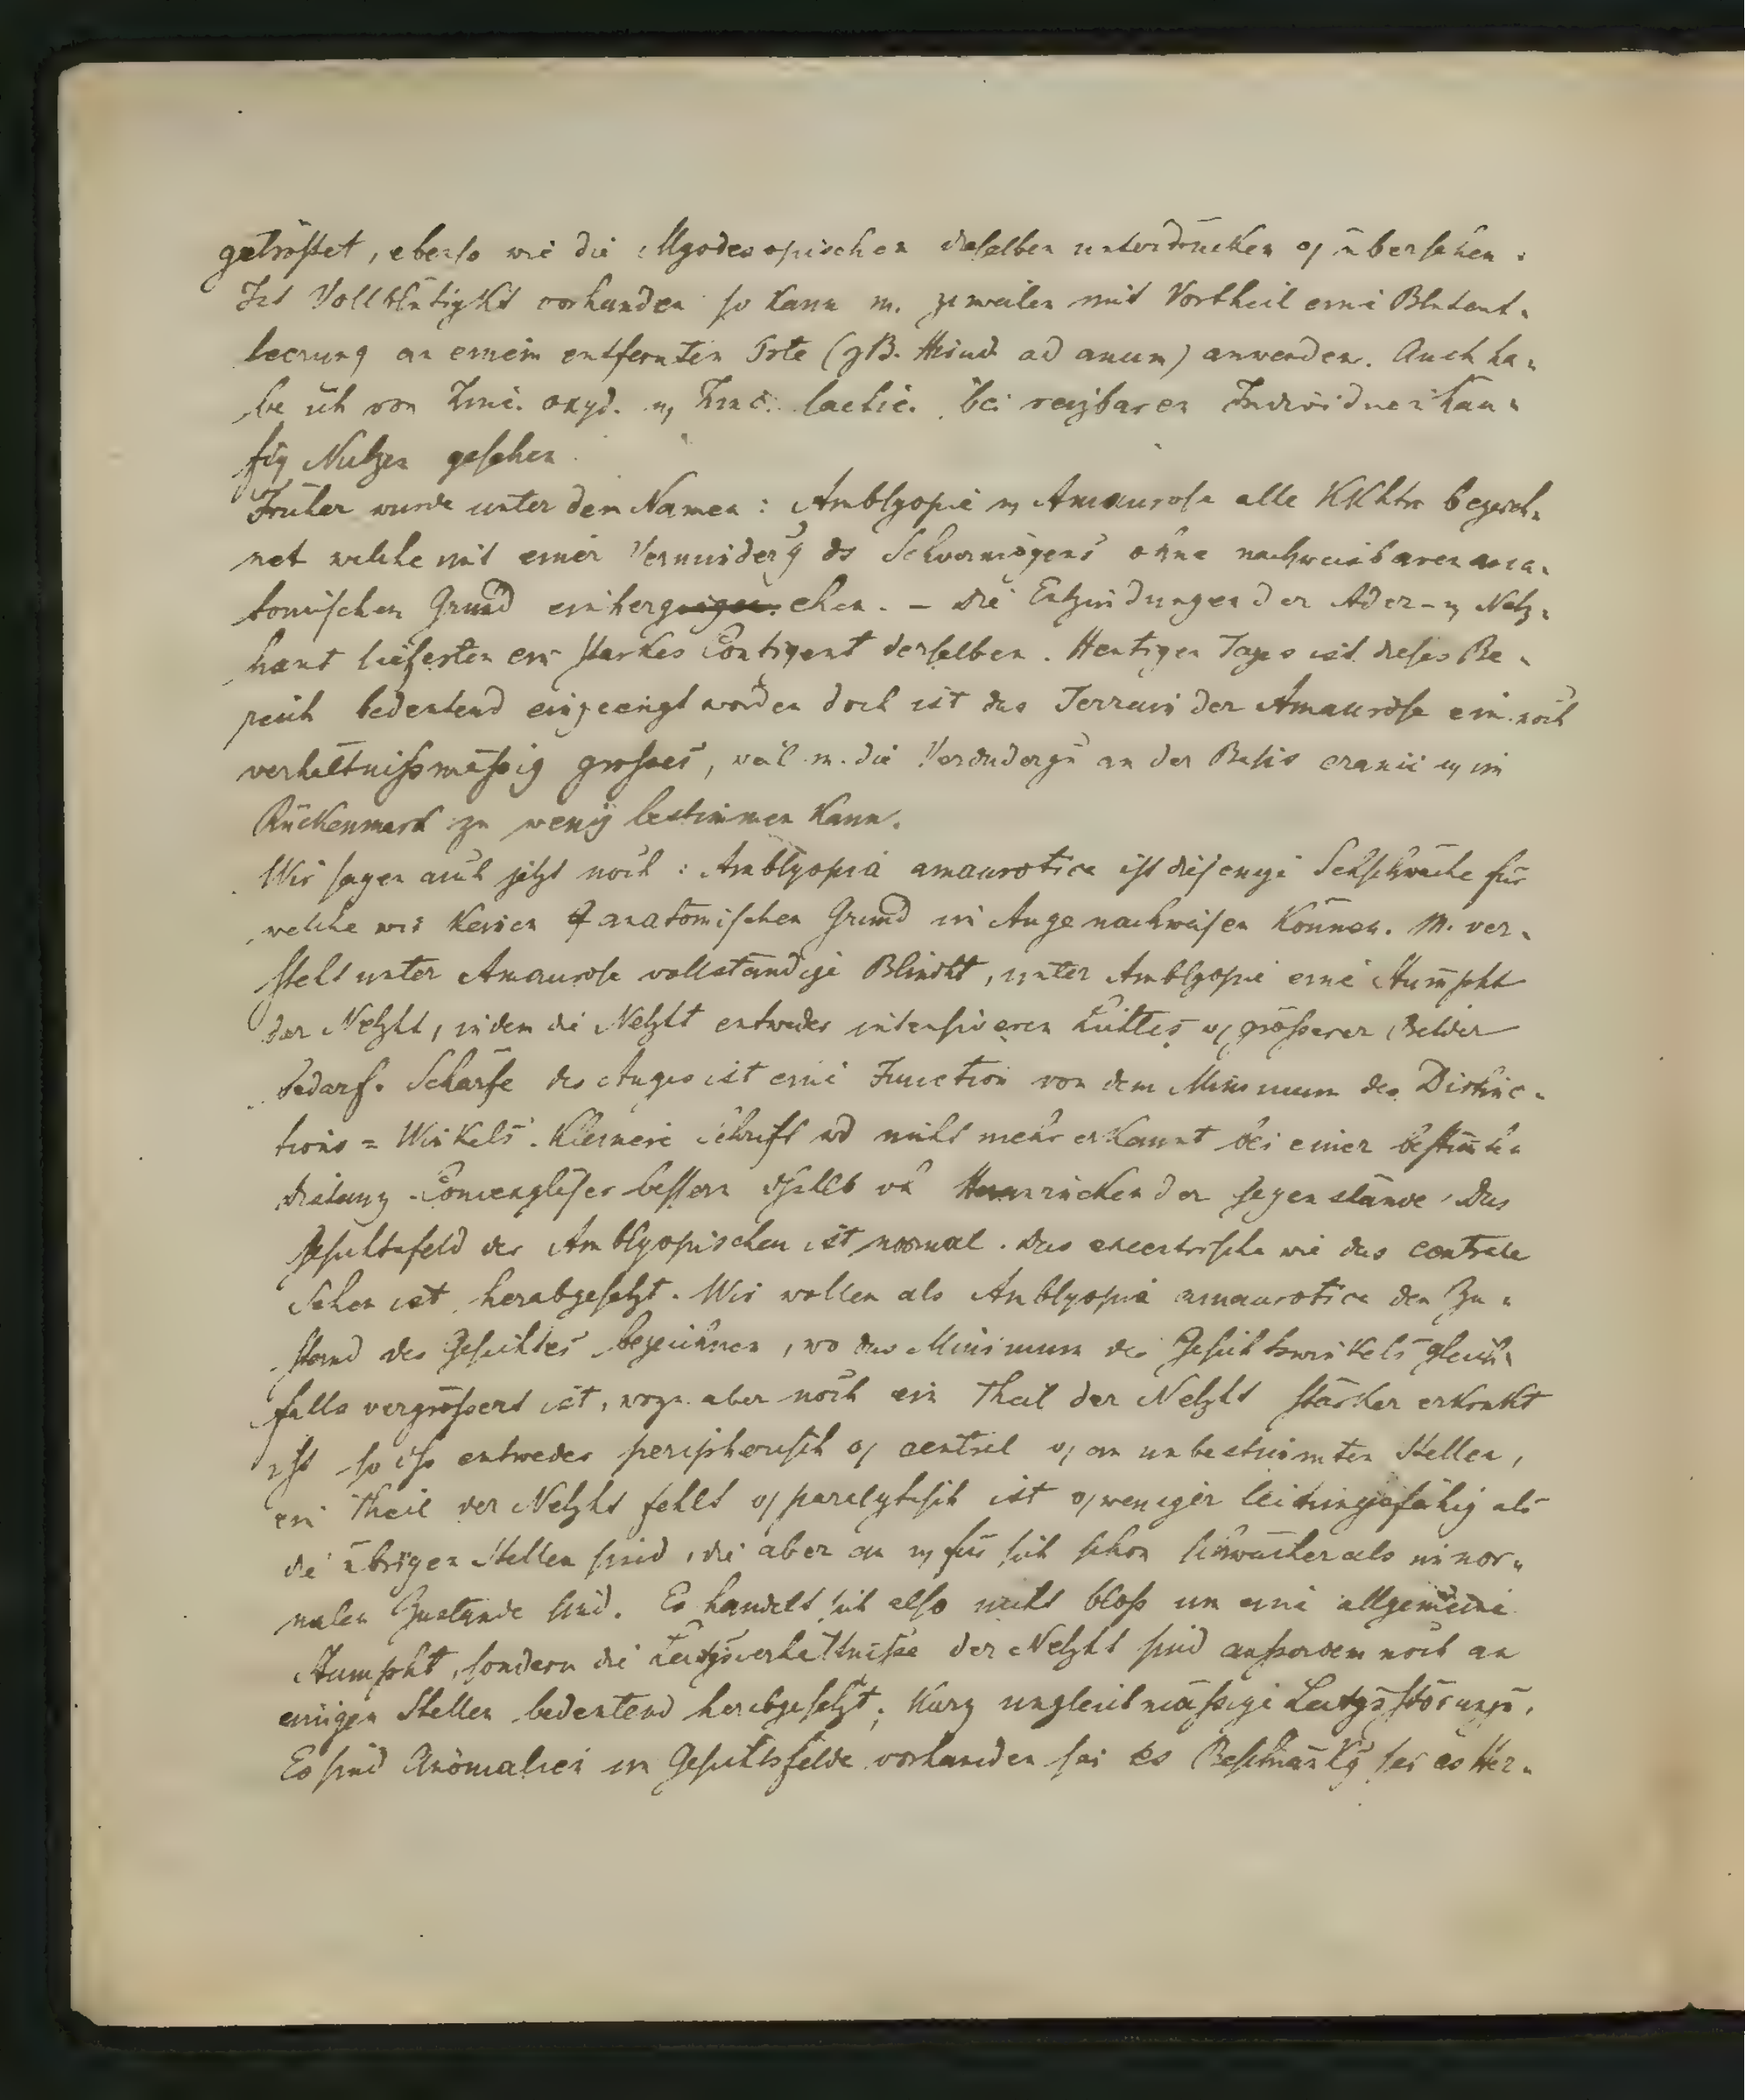 getröstet, ebenso wie die Myodesopischen dieselben unterdrücken oj übersehen.
Ist Vollblütigkt vorhanden so kann m. zuweilen mit Vortheil eine Blutent-
leerung an einem entfernten Orte (z.B. Hirud. ad anum) anwenden. Auch ha-
be ich von Zinc. oxyd. u, Zinc. lactic. bei reizbaren Individuen häu-
fig Nutzen gesehen.
Früher wurde unter dem Namen: Amblyopie u, Amaurose alle KKhtn bezeich-
net welche mit einer Verminderg ds Sehvermögens ohne nachweisbaren ana-
tomischen Grund einherg ehen. - Die Entzündungen der Ader- u, Netz-
haut lieferten ein starkes Contigent derselben. Heutigen Tages ist dieses Be-
reich bedeutend eingeengt worden doch ist das Terrain der Amaurose ein noch
verhältnißmäßig grosses, weil m. die Verändergn an der Basis cranii u, im
Rückenmark zu wenig bestimmen kann.
Wir sagen auch jetzt noch: Amblyopia amaurotica ist diejenige Sehschwäche für
welche wir keinen anatomischen Grund im Auge nachweisen können. M. ver-
steht unter Amaurose vollständige Blindht, unter Amblyopie eine Stumpfht
der Netzht, indem die Netzht entweder intensiveren Lichtes oj größerer Bilder
bedarf. Schärfe des Auges ist eine Function von dem Minimum des Distinc-
tions = Winkels. Kleinere Schrift wd nicht mehr erkannt bei einer bestimten
Distanz. Convexgläser bessern dshlb wie rücken der Gegenstände. Das
Gesichtsfeld der Amblyopischen ist normal. Das excentrische wie das centrale
Sehen ist herabgesetzt. Wir wollen als Amblyopia amaurotica den Zu-
stand des Gesichtes bezeichnen, wo das Minimum des Gesichtswinkels gleich-
falls vergrößert ist, wozu aber noch ein Theil der Netzht stärker erkrankt
ist so dß entweder peripherisch oj central oj an unbestimmten Stellen,
ein Theil der Netzht fehlt oj paralytisch ist oj weniger leitungsfähig als
die übrigen Stellen sind, die aber an u, für sich schon schwächer als im nor-
malen Zustande sind. Es handelt sich also nicht bloß um eine allgemeine
Stumpfht, sondern die Leitgsverhältniße der Netzht sind außerdem noch an
einigen Stellen bedeutend herabgesetzt; kurz ungleichmäßige Leitgsstörungn.
Es sind Anomalien im Gesichtsfelde vorhanden sei es Beschränkg sei es Her-